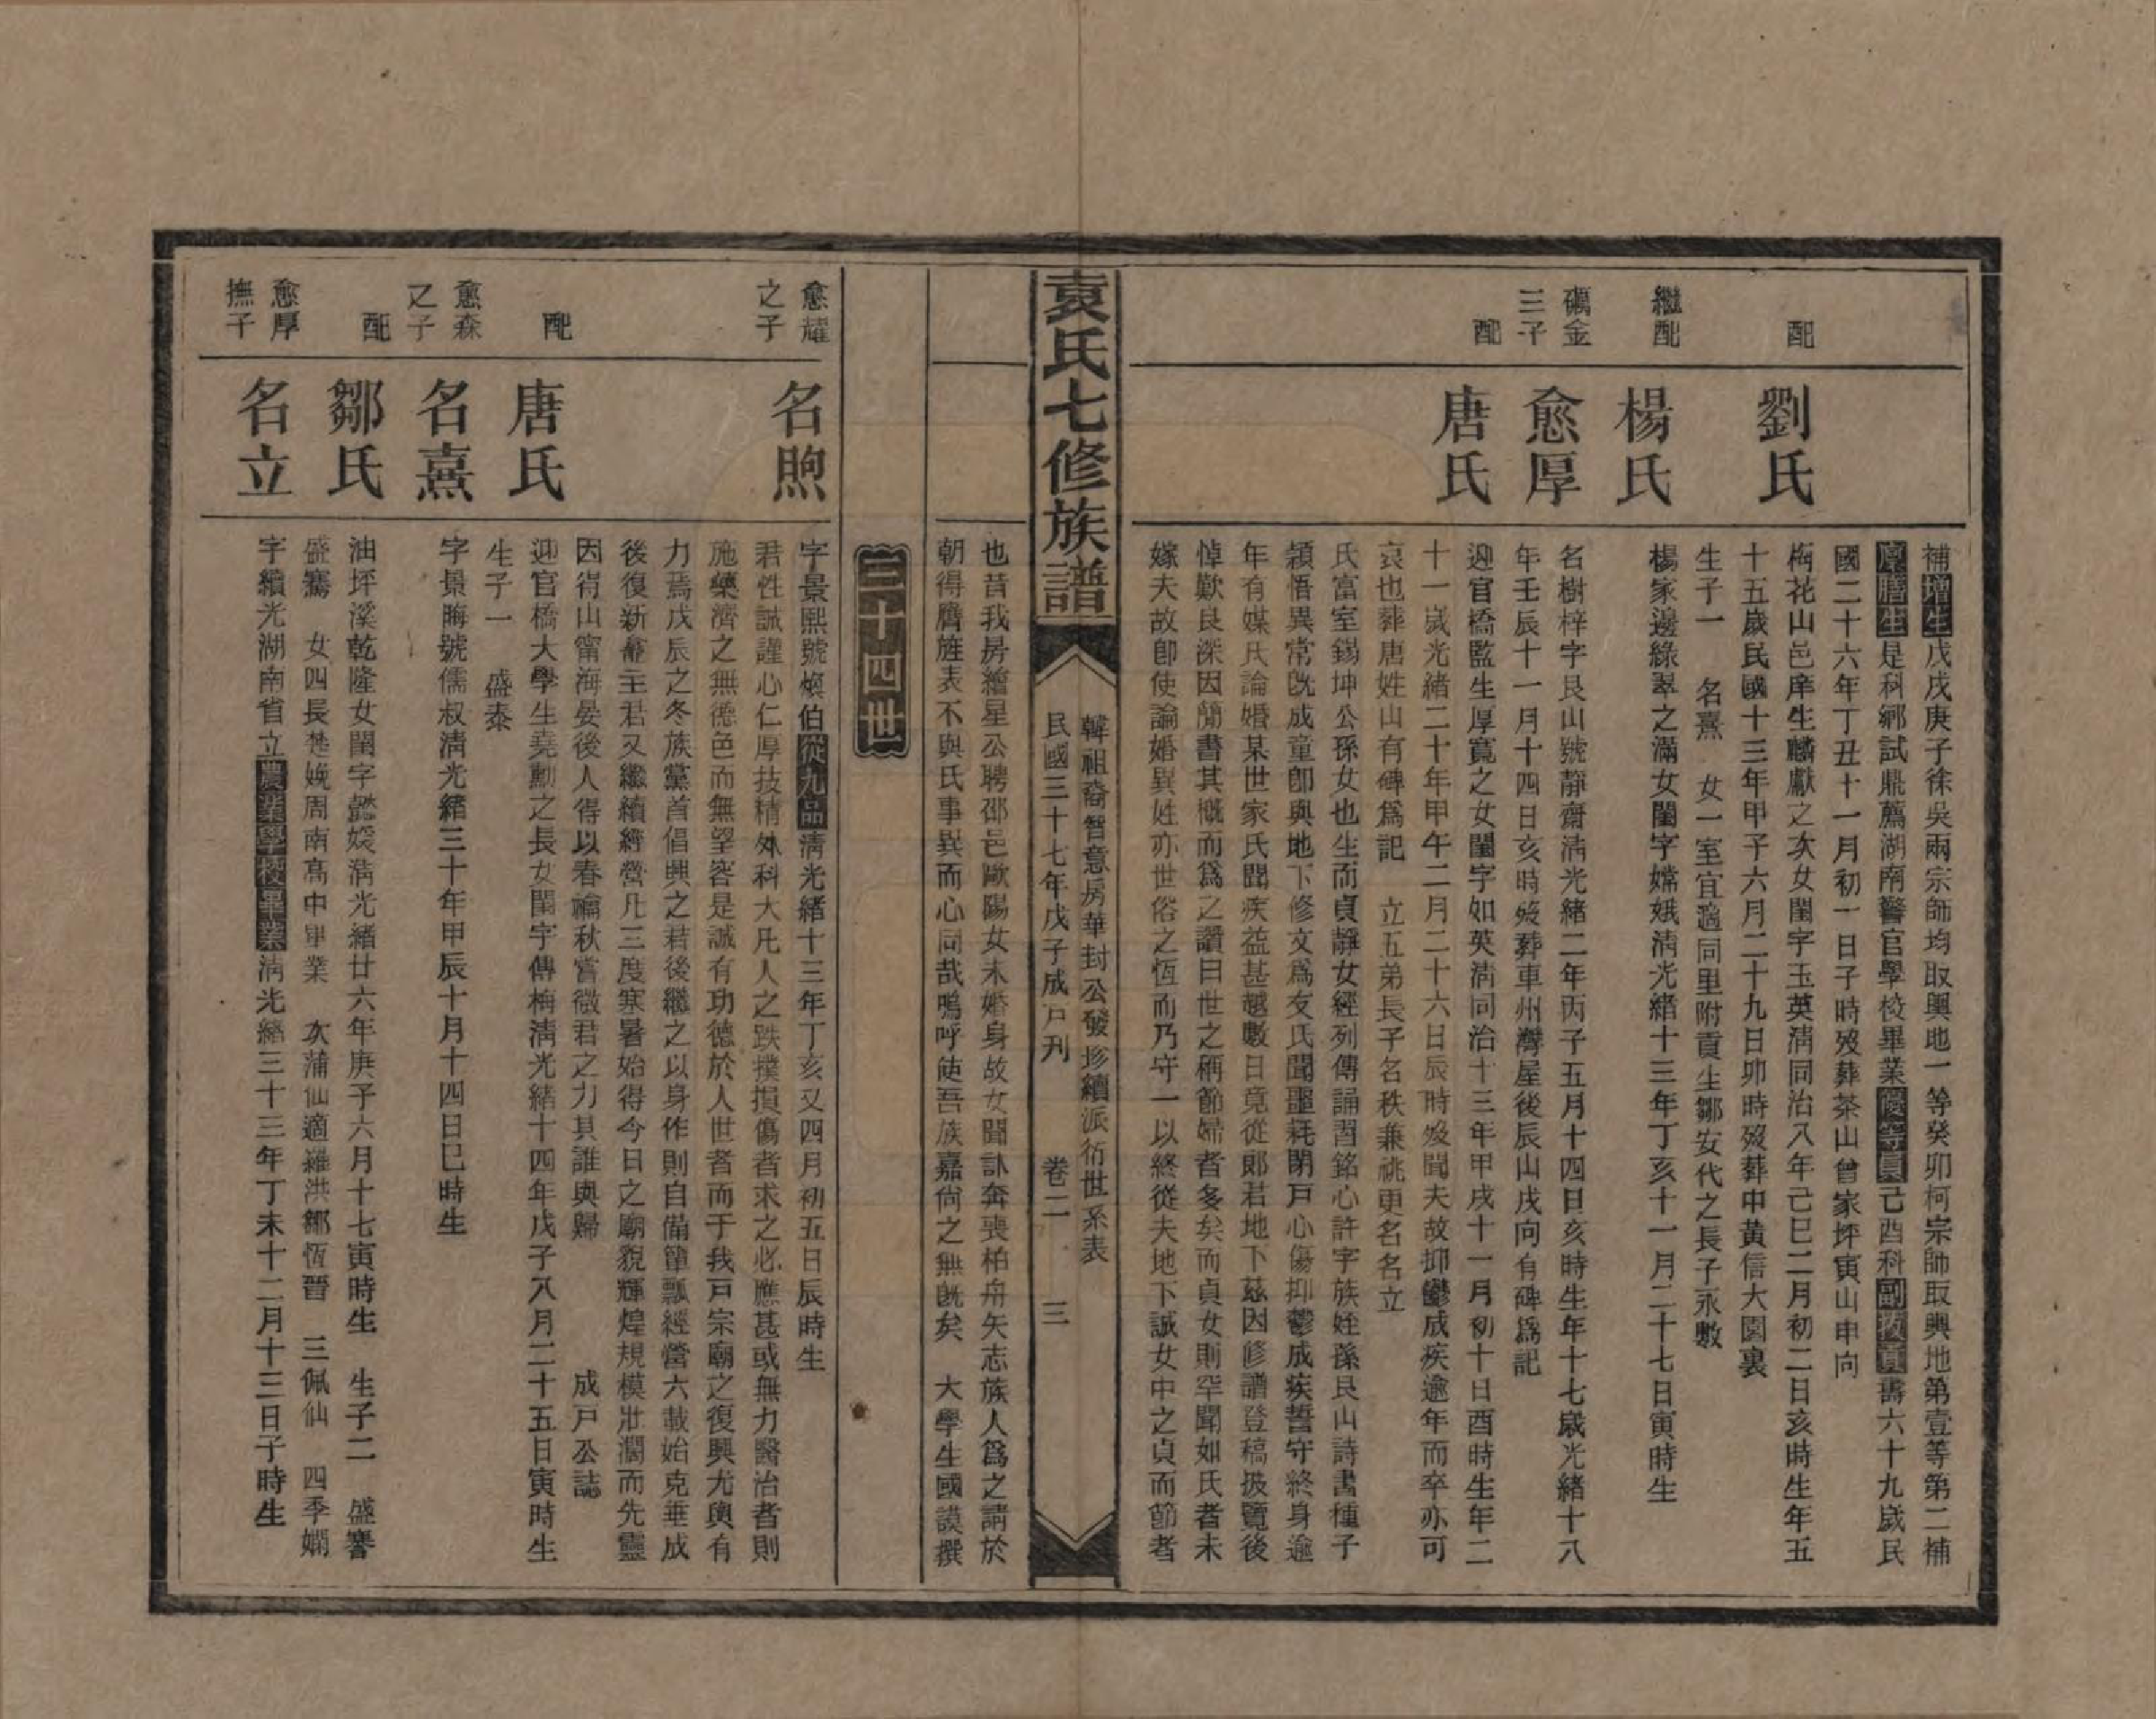 補增生戊戌庚子徐吳兩宗師均取輿地一等癸卯柯宗師取輿地第壹等第二補
廩膳生是科鄉試鼎薦湖南警官學校畢業優等員己酉科副拔貢壽六十九歲民
國二十六年丁丑十一月初一日子時歿葬茶山曾家坪寅山申向
配
劉氏
梅花山邑庠生麟獻之次女閨字玉英清同治八年己巳二月初二日亥時生年五
十五歲民國十三年甲子六月二十九日卯時歿葬中黃信大園裏
生子一 名熹 女一室宜適同里附貢生鄒安代之長子永敷
繼配
楊氏
楊家邊綠翠之滿女閨字嫦娥清光緒十三年丁亥十一月二十七日寅時生
礪金
三子
愈厚
名樹梓字艮山號靜齋清光緒二年丙子五月十四日亥時生年十七歲光緒十八
年壬辰十一月十四日亥時歿葬車州灣屋後辰山戌向有碑爲記
配
唐氏
迎官橋監生厚寬之女閨字如英清同治十三年甲戌十一月初十日酉時生年二
十一歲光緒二十年甲午二月二十六日辰時歿聞夫故抑鬱成疾逾年而卒亦可
哀也葬唐姓山有碑爲記 立五弟長子名秩兼祧更名名立
氏富室錫坤公孫女也生而貞靜女經列傳誦習銘心許字族姪孫艮山詩書種子
穎悟異常旣成童卽與地下修文爲友氏聞噩耗閉戸心傷抑鬱成疾誓守終身逾
年有媒氏論婚某世家氏聞疾益甚越數日竟從郞君地下茲因修譜登稿披覽後
悼歎良深因簡書其慨而爲之讚曰世之稱節婦者多矣而貞女則罕聞如氏者未
嫁夫故卽使論婚異姓亦世俗之恆而乃守一以終從夫地下誠女中之貞而節者
袁氏七修族譜
韓祖裔智意房華封公發珍續派衍世系表
民國三十七年戊子成戸刊
卷二
三
也昔我房繪星公聘邵邑歐陽女未婚身故女聞訃奔喪柏舟矢志族人爲之請於
朝得膺旌表不與氏事異而心同哉嗚呼使吾族嘉尚之無旣矣 大學生國謨撰
三十四世
愈耀
之子
名煦
字景熙號煥伯從九品清光緒十三年丁亥又四月初五日辰時生
君性誠謹心仁厚技精外科大凡人之跌撲損傷者求之必應甚或無力醫治者則
施藥濟之無德色而無望容是誠有功德於人世者而于我戸宗廟之復興尤與有
力焉戊辰之冬族黨首倡興之君後繼之以身作則自備簞瓢經營六載始克垂成
後復新龕主君又繼續經營凡三度寒暑始得今日之廟貌輝煌規模壯濶而先靈
因得山甯海晏後人得以春禴秋嘗微君之力其誰與歸 成戸公誌
配
唐氏
迎官橋大學生堯勳之長女閨字傳梅清光緒十四年戊子八月二十五日寅時生
生子一 盛泰
愈森
之子
名熹
字景晦號儒叔清光緒三十年甲辰十月十四日巳時生
配
鄒氏
油坪溪乾隆女閨字懿媛清光緒廿六年庚子六月十七寅時生 生子二 盛謇
盛騫 女四長楚娩周南高中畢業 次蒲仙適羅洪鄒恆晉 三佩仙 四季嫻
愈厚
撫子
名立
字續光湖南省立農業學校畢業清光緒三十三年丁未十二月十三日子時生